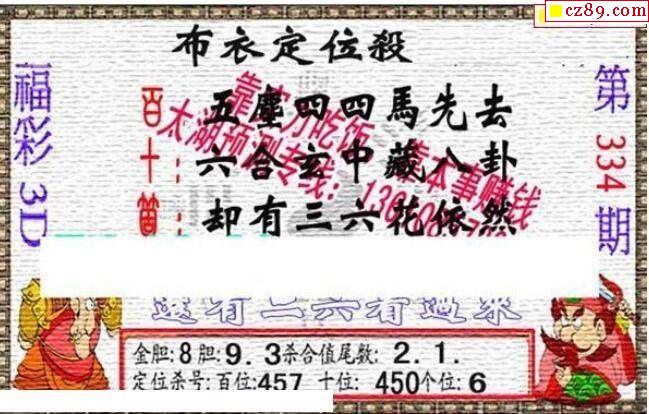 cz89.com
布衣定位殺
福彩3D
第334期
百:五塵四四馬先去
十:六合玄中藏八卦
個:却有三六花依然
靠实力吃饭 靠本事赚钱
太湖预测专线:
金胆:8胆:9.3杀合值尾数:2.1.
定位杀号:百位:457 十位:450个位:6